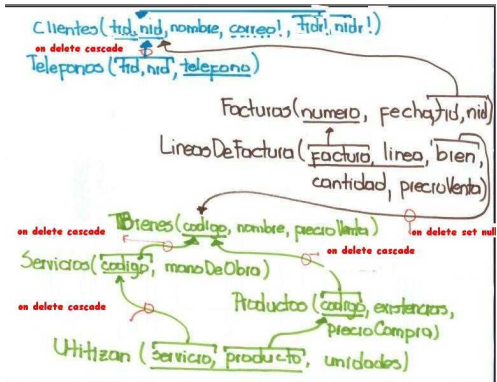 Clientes(tid, nid, nombre, correo!, tidr!, nidr!)
on delete cascade
Telefonos(tid, nid, telefono)
Facturas(numero, fecha, tid, nid)
LineasDeFactura(factura, linea, bien,
cantidad, precioVenta)
Bienes(codigo, nombre, precioVenta)
on delete cascade
on delete set null
on delete cascade
Servicios(codigo, manoDeObra)
Productos(codigo, existencias,
precioCompra)
on delete cascade
Utilizan(servicio, producto, unidades)